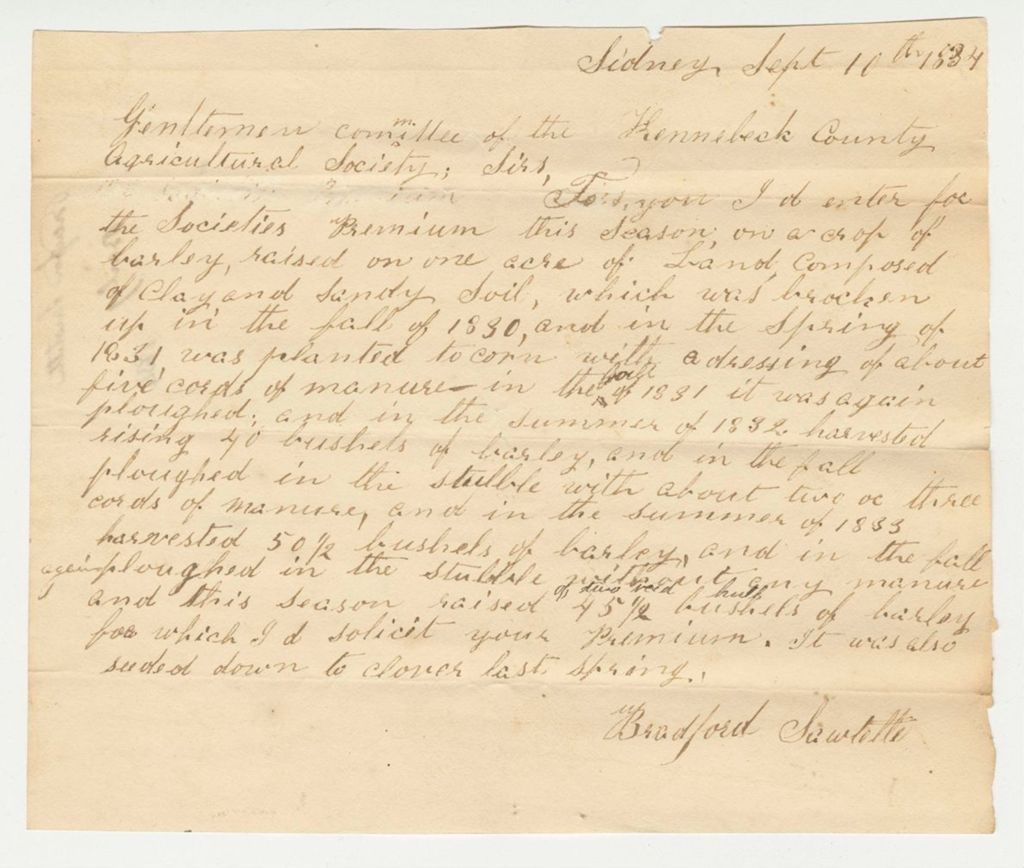 Sidney, Sept 10th 1834
Gentlemen committee of the Kennebeck County
Agricultural Society; Sirs,
you I d enter for
the Societies Premium this season, on a crop of
barley, raised on one acre of Land, Composed
of Clay and Sandy Soil, which was brocken
up in the fall of 1830, and in the Spring of
1831 was planted to corn with a dressing of about
five cords of manure – in the fall of 1831 it was again
ploughed; and in the summer of 1832 harvested
rising 40 bushels of barley, and in the fall
ploughed in the stubble with about two or three
cords of manure, and in the summer of 1833
harvested 50 1/2 bushels of barley, and in the fall
again ploughed in the stubble without any manure
and this season raised 45 1/2 bushels of of two rod barley
for which I d solicit your Premium. It was also
seeded down to clover last spring.
Bradford Sawtelle